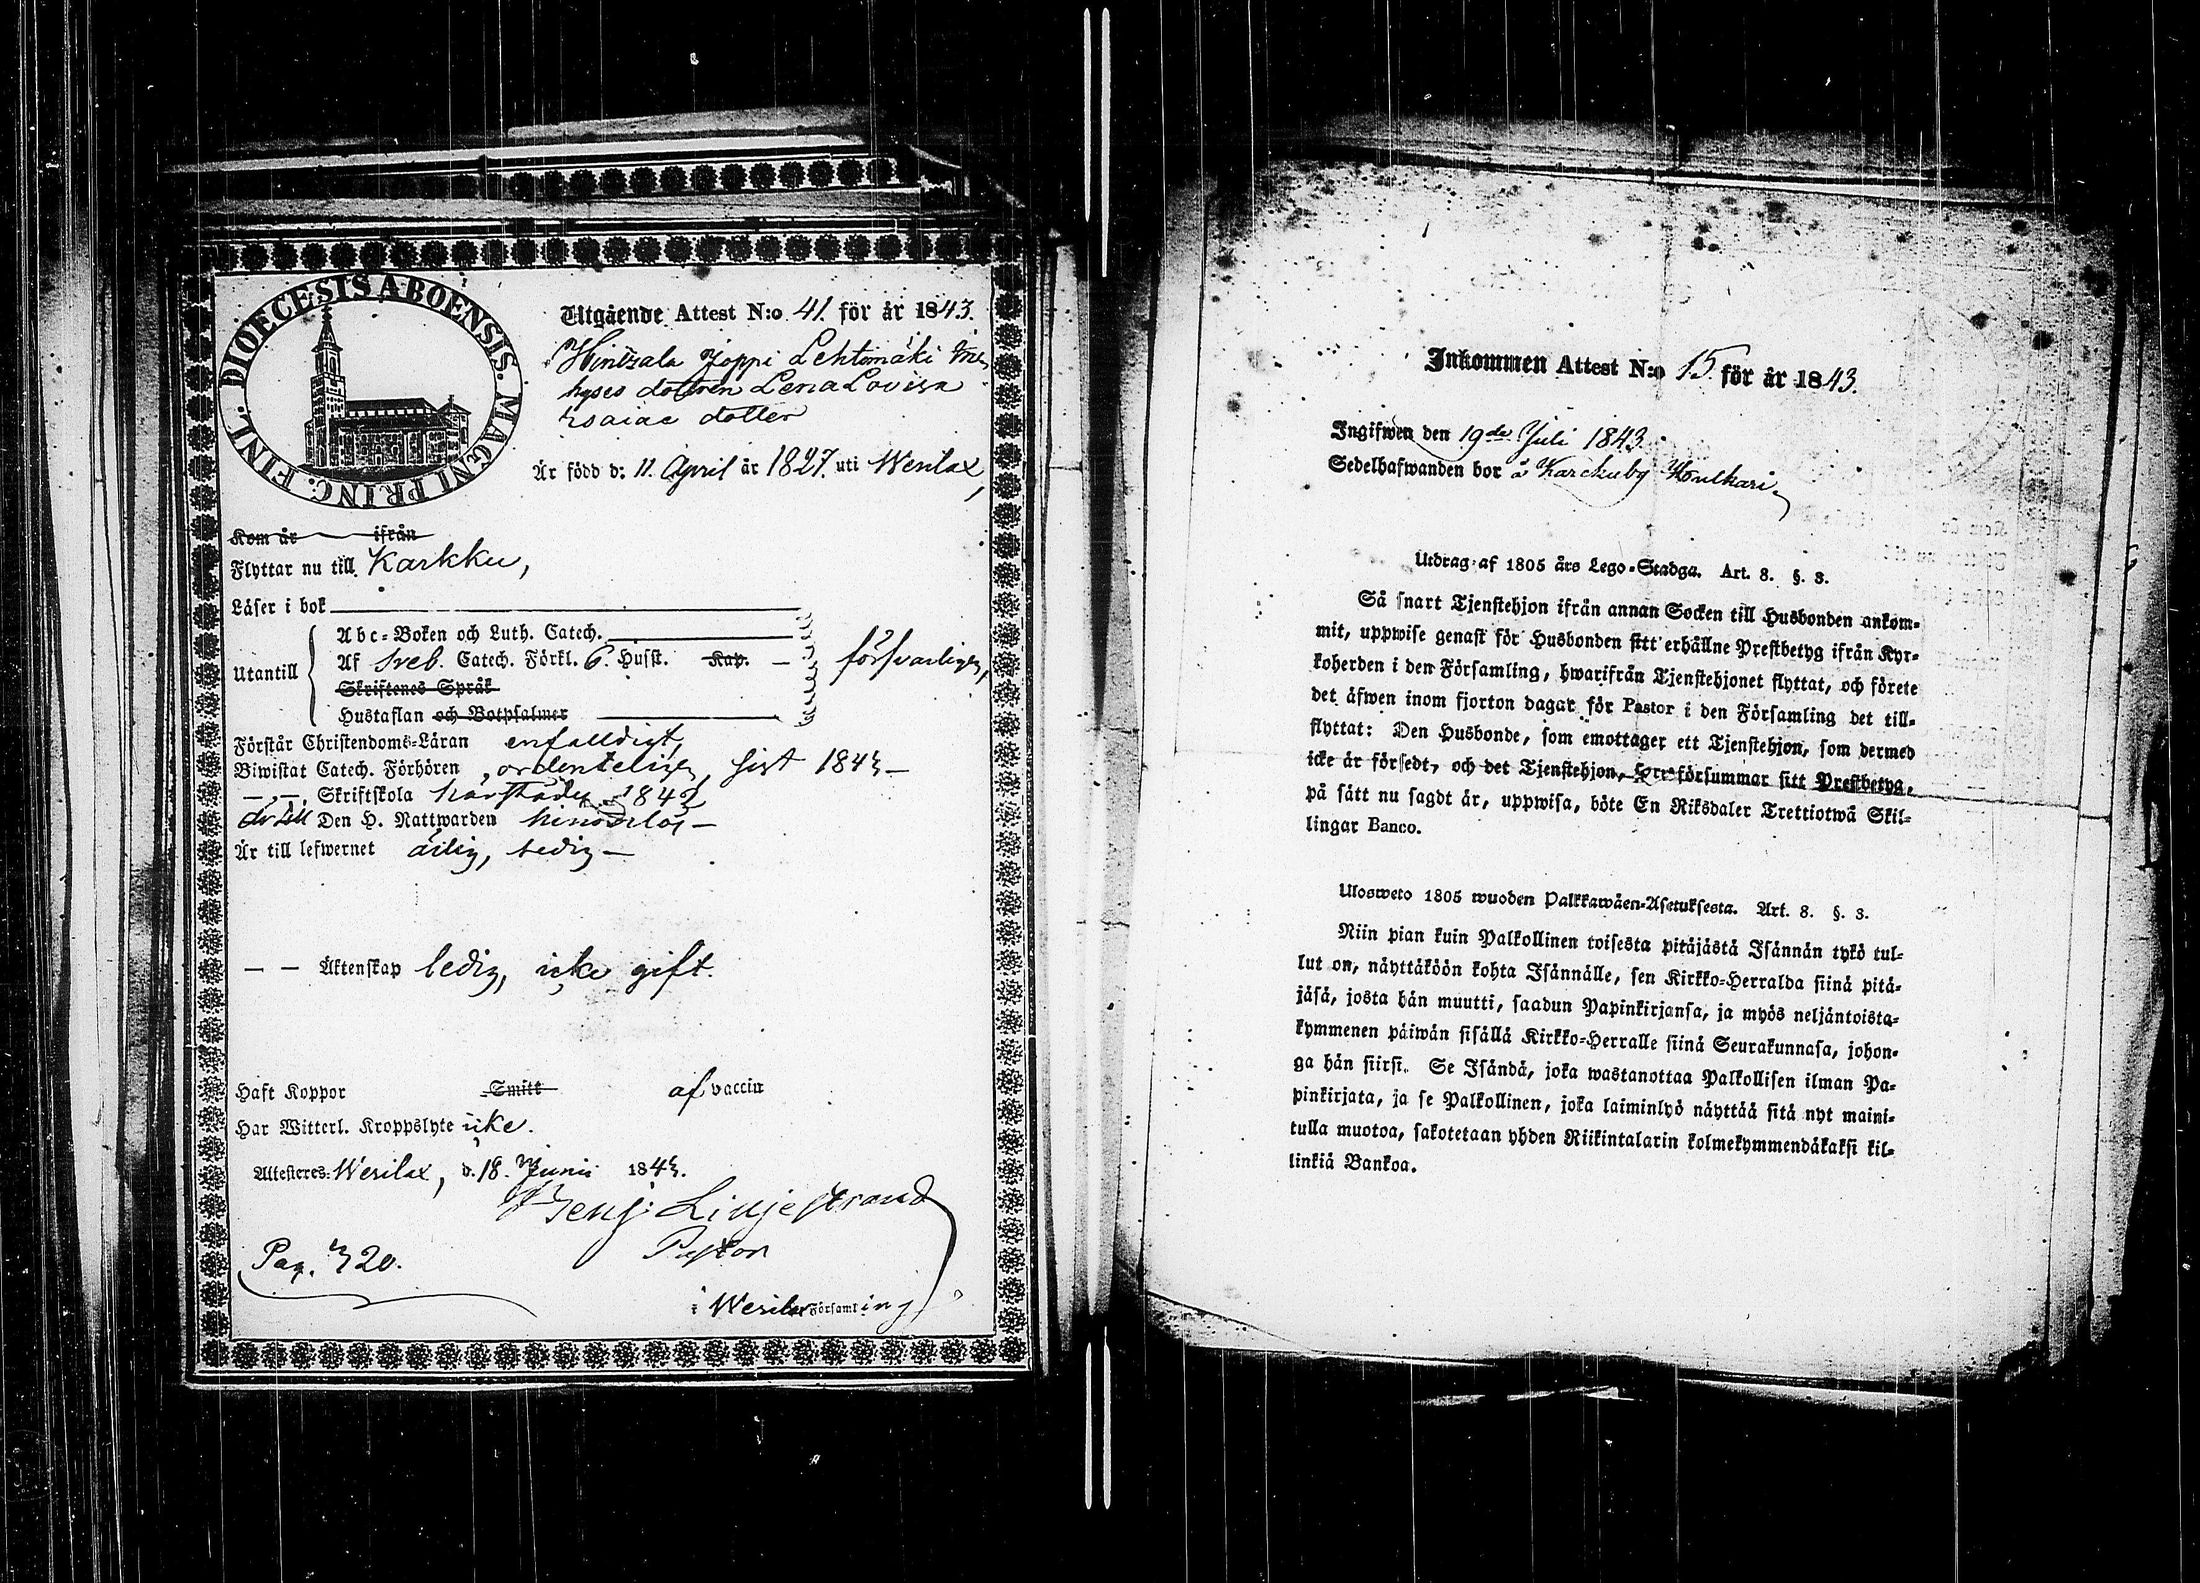 DIOECESIS ABOENSIS. MAGNI PRINC. FINL.
Utgående Attest N:o 41. för år 1843.
Hintzala Joppi Lehtimäki Inhyses
dottren Lena Lovisa
Esaiae dotter
Är född d: 11. April år 1827. uti Wesilax,
Kom år ifrån
Flyttar nu till Karkku,
Läser i bok
Abc-Boken och Luth. Catech.
Utantill Af Sveb. Catech. Förkl. 6. Husst. Kap. — försvarligen,
Skriftenes Språk
Hustaflan och Botpsalmer
Förstår Christendoms-Läran enfalldigt,
Biwistat Catech. Förhören ordenteligen, sist 1843 —
— „ — Skriftskola härstädes 1843
är till Den H. Nattwarden hinderlös —
Är till lefwernet ärlig, ledig —
— — Äktenskap ledig, icke gift.
Haft Koppor Smitt af vaccin
Har Witterl. Kroppslyte icke.
Attesteras: Wesilax, d. 18. Junii 1843.
Benj: Liljestrand
Pastor
Pag. 320.
i Wesilax Församling
Inkommen Attest N:o 15. för år 1843.
Ingifwen den 19de Juli 1843.
Sedelhafwanden bor å Karckuby Kulkari
Utdrag af 1805 års Lego-Stadga. Art. 8. §. 3.
Så snart Tjenstehjon ifrån annan Socken till Husbonden ankom-
mit, uppwise genast för Husbonden sitt erhållne Prestbetyg ifrån Kyr-
koherden i den Församling, hwarifrån Tjenstehjonet flyttat, och förete
det äfwen inom fjorton dagar för Pastor i den Församling det till-
flyttat: Den Husbonde, som emottager ett Tjenstehjon, som dermed
icke är försedt, och det Tjenstehjon, som försummar sitt Prestbetyg,
på sätt nu sagdt är, uppwisa, böte En Riksdaler Trettiotwå Skil-
lingar Banco.
Ulosweto 1805 wuoden Palkkawäen-Asetuksesta. Art. 8. §. 3.
Niin pian kuin Palkollinen toisesta pitäjästä Isännän tykö tul-
lut on, näyttäköön kohta Isännälle, sen Kirkko-Herralda siinä pitä-
jäsä, josta hän muutti, saadun Papinkirjansa, ja myös neljäntoista-
kymmenen päiwän sisällä Kirkko-Herralle siinä Seurakunnasa, johon-
ga hän siirsi. Se Isändä, joka wastanottaa Palkollisen ilman Pa-
pinkirjata, ja se Palkollinen, joka laiminlyö näyttää sitä nyt maini-
tulla muotoa, sakotetaan yhden Riikintalarin kolmekymmendäkaksi kil-
linkiä Bankoa.